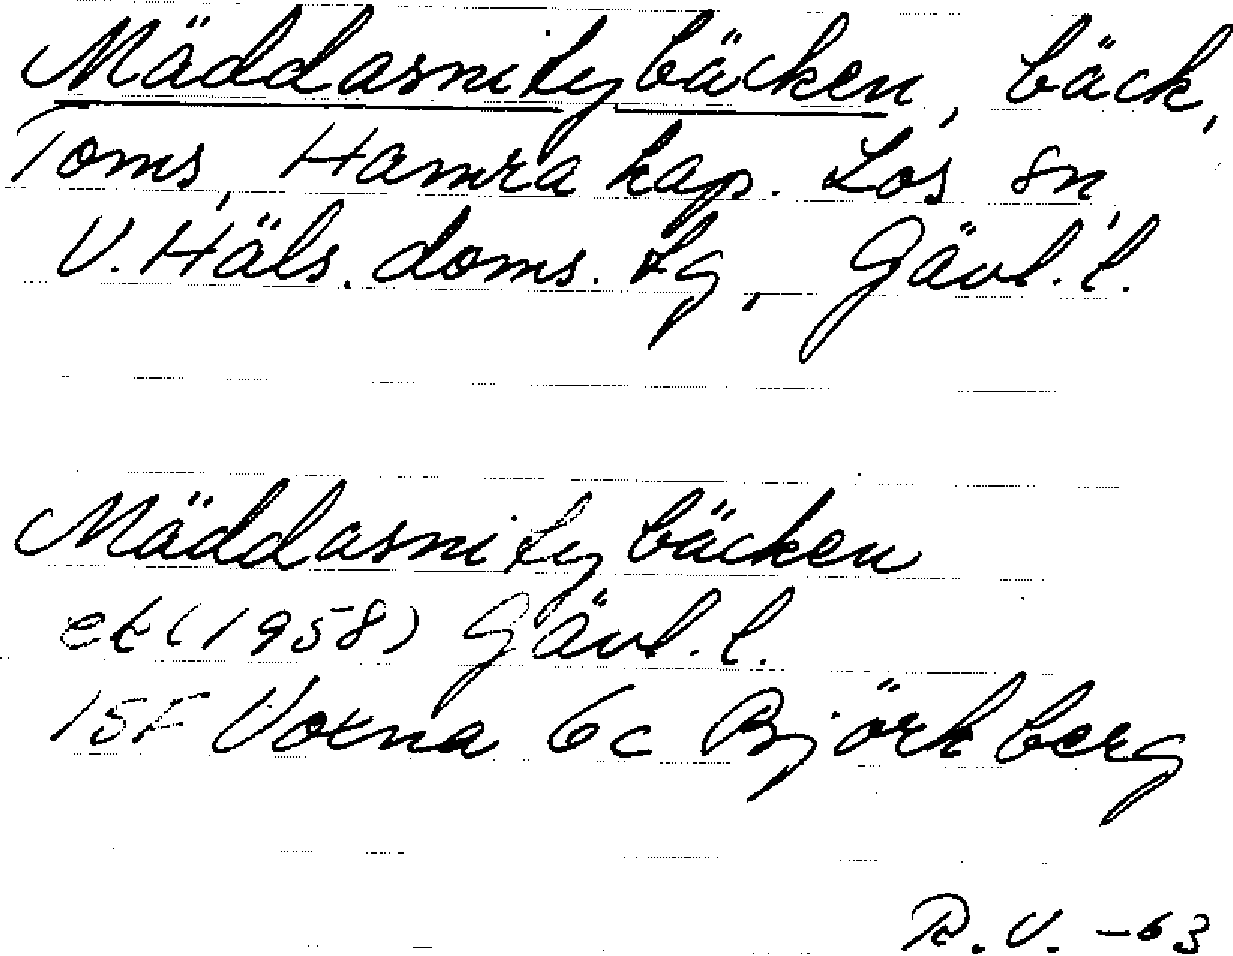 Mäddasnitybäcken, bäck,
Toms, Hamra kap. Los sn,
V. Häls. doms. tg, Gävl. l.
Mäddasnitybäcken
ek (1958) Gävl. l.
15F Voxna 6c Björkberg
R.V. -63